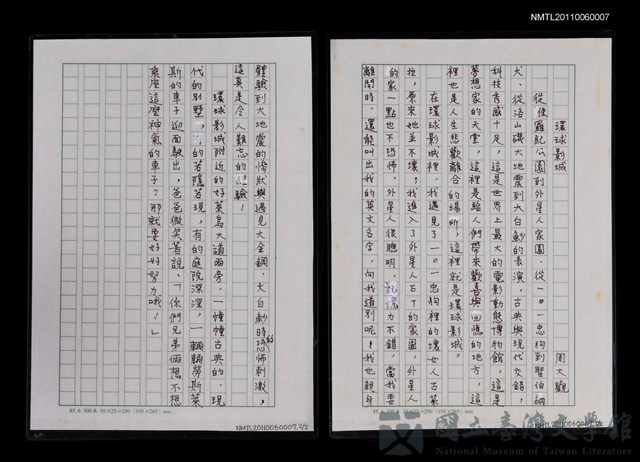 NMTL20110060007
環球影城
周大觀
從侏羅紀公園到外星人家園、從一○一忠狗到聖伯納
犬、從洛山磯大地震到大白鯊的表演，古典與現代交錯，
科技秀感十足，這是世界上最大的電影動態博物館，這是
夢想家的天堂，這裡是給人們帶來歡喜與回憶的地方，這
裡也是人生悲歡離合的場所，這裡就是環球影城。
在環球影城裡，我遇見了一○一忠狗裡的壞女人古萊
拉，原來她並不壞；我進入了外星人ET的家園，外星人
的家一點也不恐怖，外星人很聰明，記憶力不錯，當我要
離開時，還能叫出我的英文名字，向我道別呢！我也親身
85.6.300本 10×25=250 (195×265) mm
NMTL20110060007 1/2
體驗到大地震的慘狀與遇見大金鋼、大白鯊時的恐怖刺激，
這真是令人難忘的經驗！
環球影城附近的好萊烏大道兩旁，一幢幢古典的、現
代的別墅，有的若隱若現，有的庭院深深，一輛輛勞斯萊
斯的車子迎面駛出，爸爸微笑著說：「你們兄弟倆想不想
乘座這麼神氣的車子？那就要好好努力哦！」
85.6.300本 10×25=250 (195×265) mm
NMTL20110060007 2/2
國立臺灣文學館
National Museum of Taiwan Literature